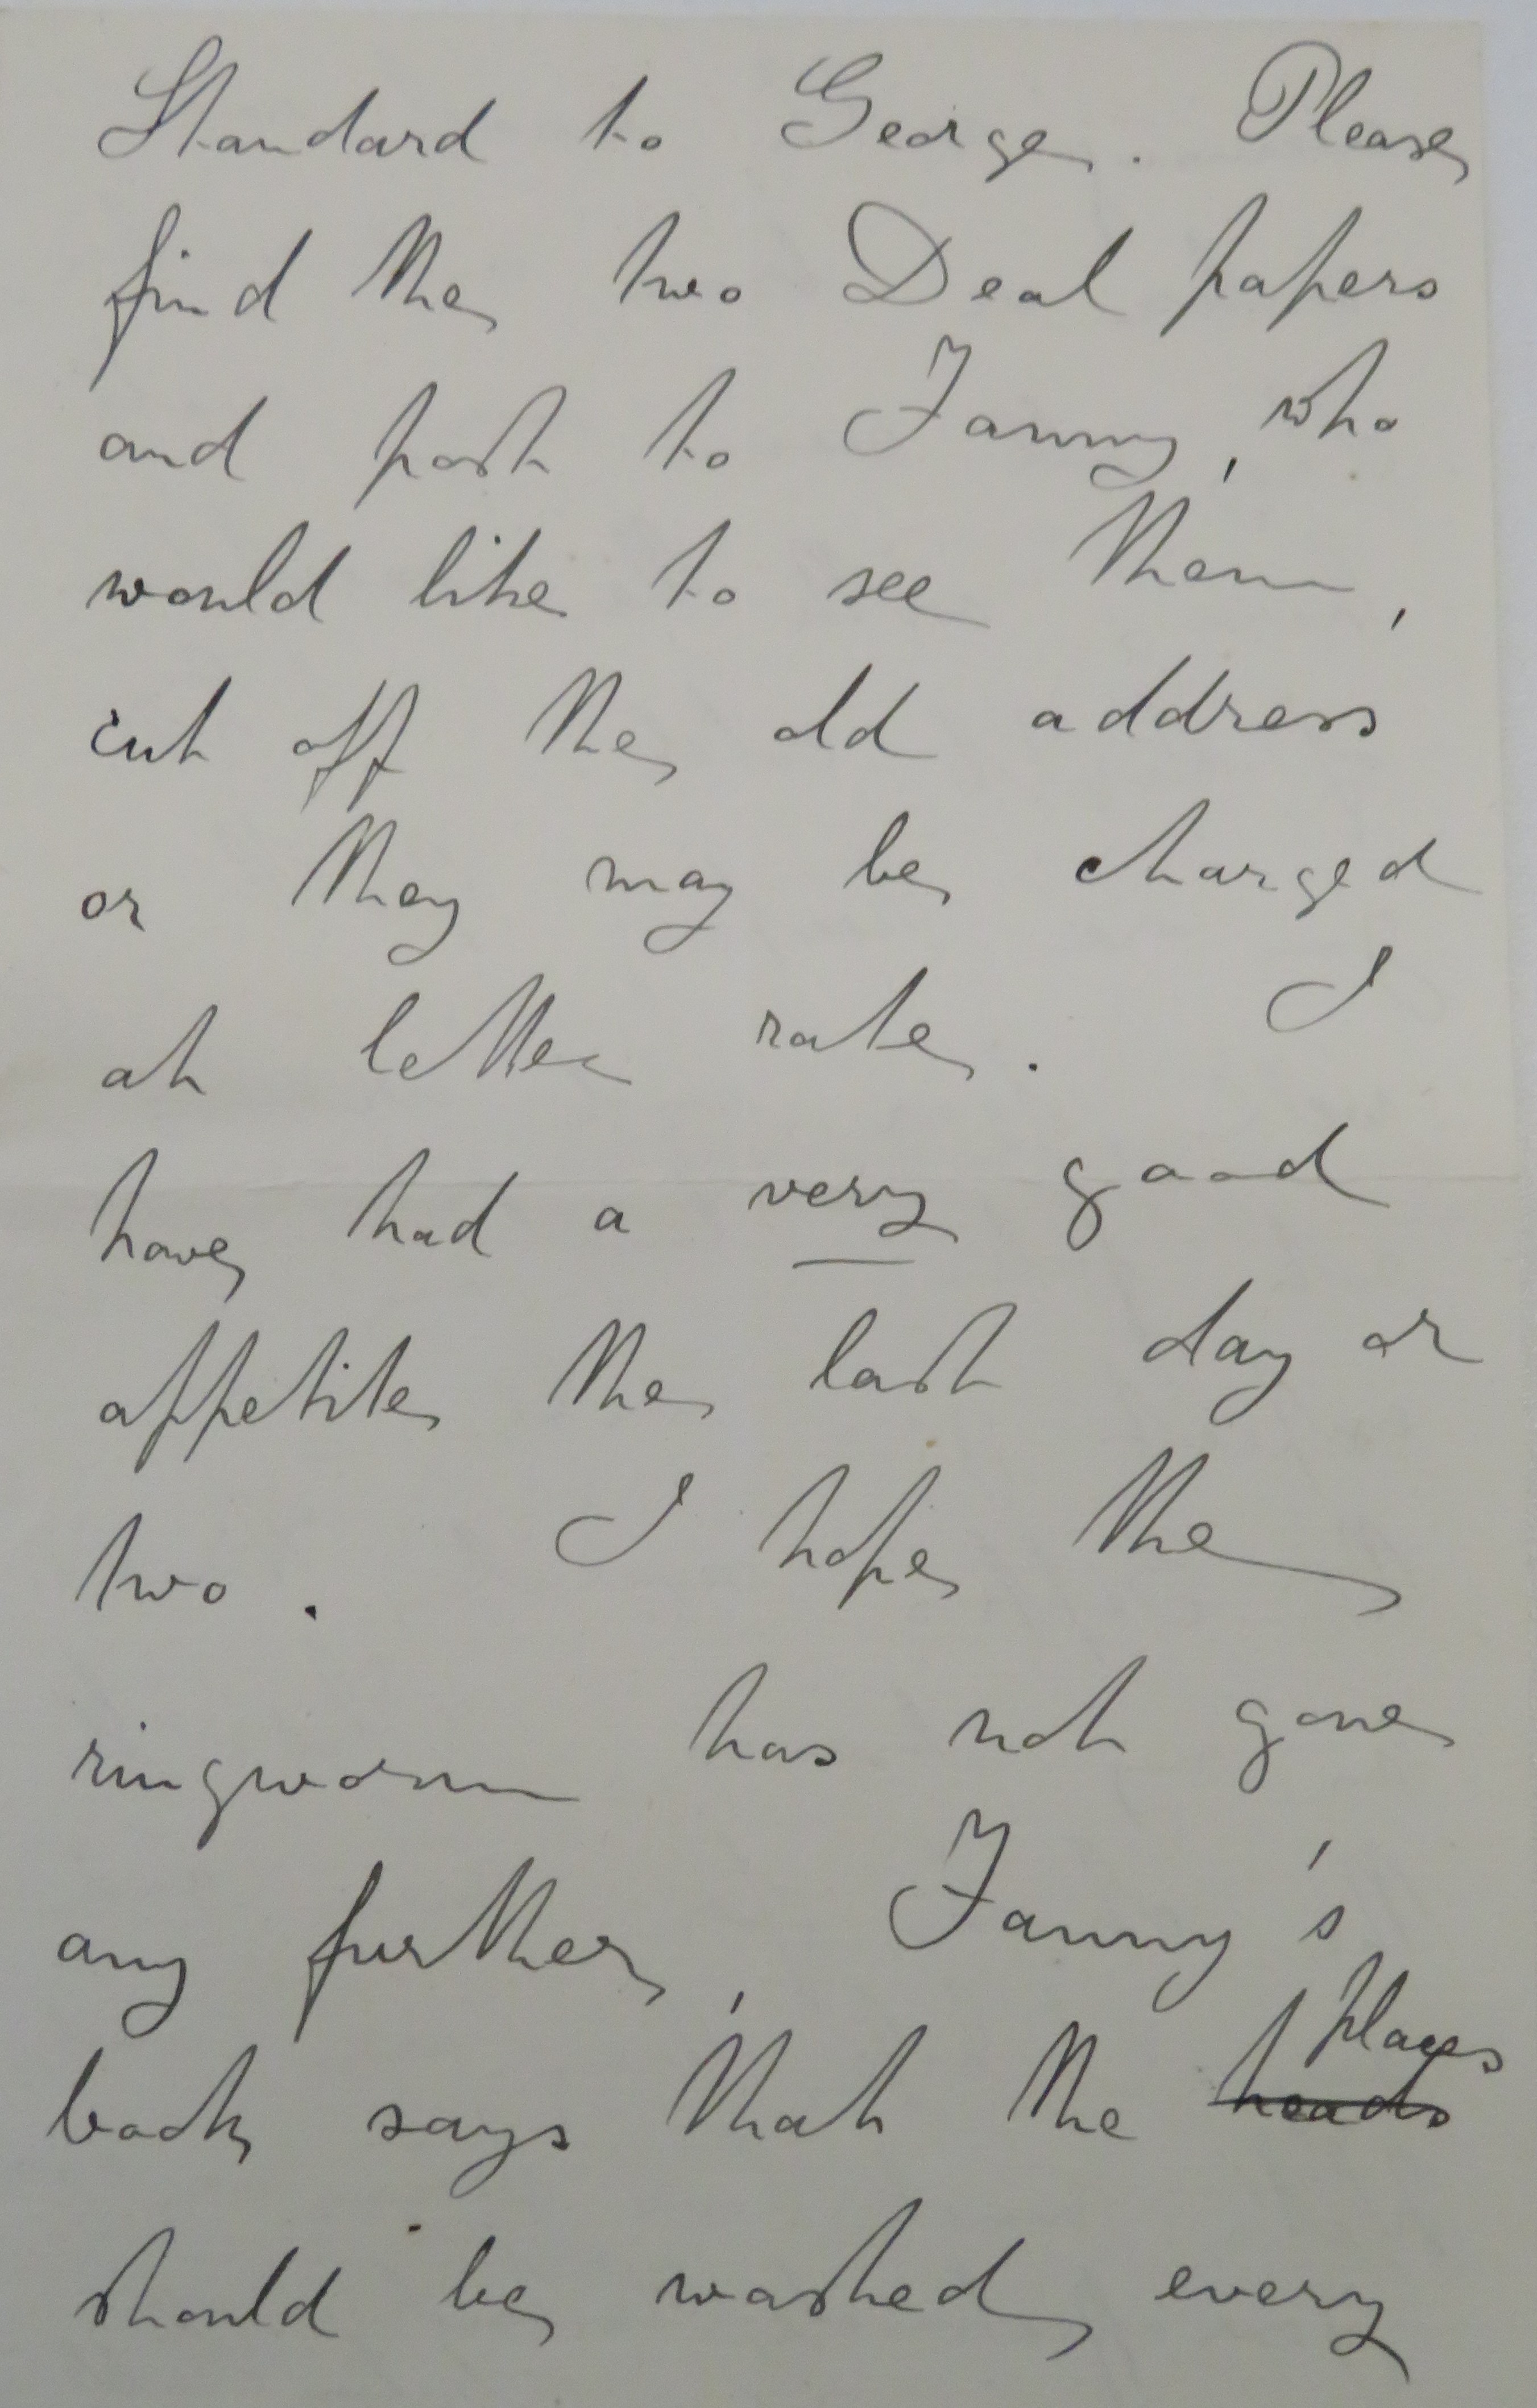 Standard to George. Please
find the two Deal papers
and post to Fanny, who
would like to see them,
cut off the old address
or they may be charged
at letter rate. I
have had a very good
appetite the last day or
two. I hope the
ringworm has not gone
any further, Fanny's
places
book says that the heads
should be washed every